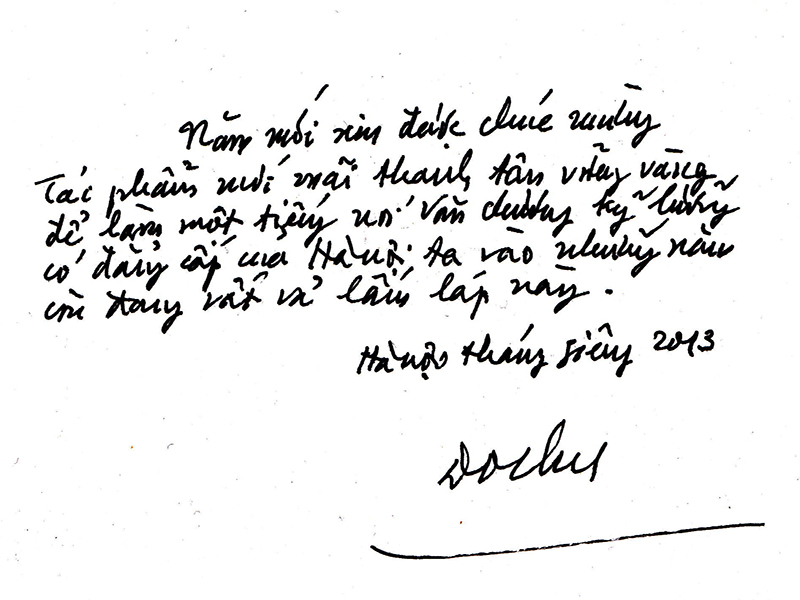 Năm mới xin được chúc mừng
Tác phẩm mới mãi thanh tân vững vàng
để làm một tiếng nói văn chương kỹ lưỡng
có đẳng cấp của Hà Nội ta vào những năm
còn đang vất vả lấm láp này.
Hà Nội tháng Giêng 2013
Do Chu